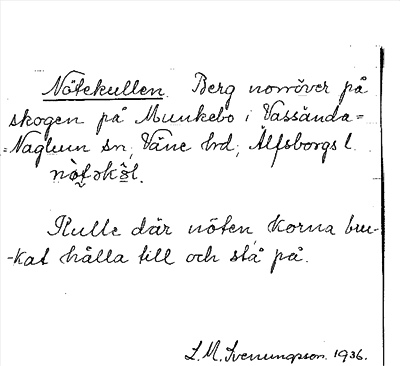 Nötekullen. Berg norröver på
skogen på Munkebo i Vassända=
=Naglum sn, Väne hd, Älfsborgs l.
Kulle där nöten, korna bru-
-kat hålla till och stå på.
L. M. Svenungsson. 1936.